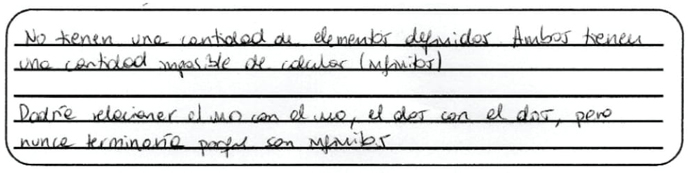 No tienen una cantidad de elementos definidos Ambos tienen
una cantidad imposible de calcular (infinitos)
Podría relacionar el uno con el uno, el dos con el dos, pero
nunca terminaría porque son infinitos